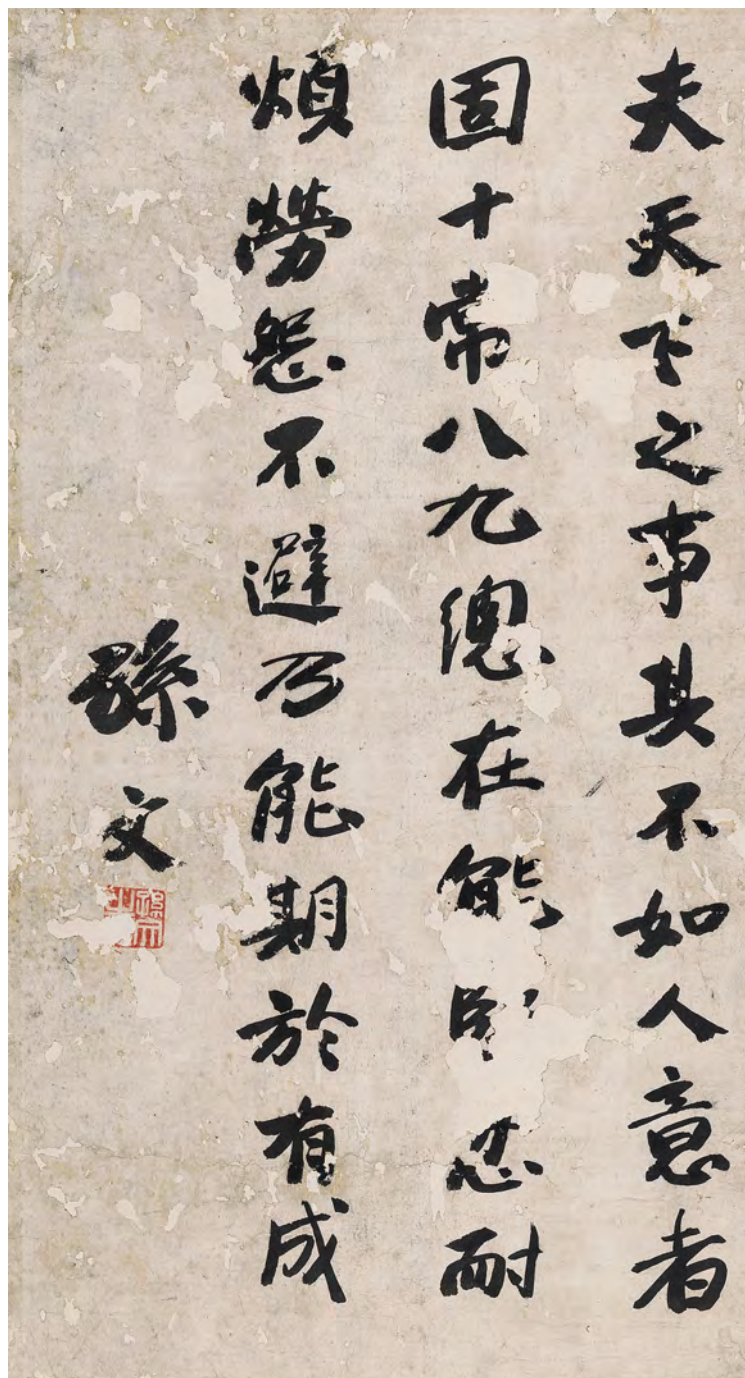 夫天下之事其不如人意者
固十常八九總在能忍耐
煩勞怨不避乃能期於有成
孫文